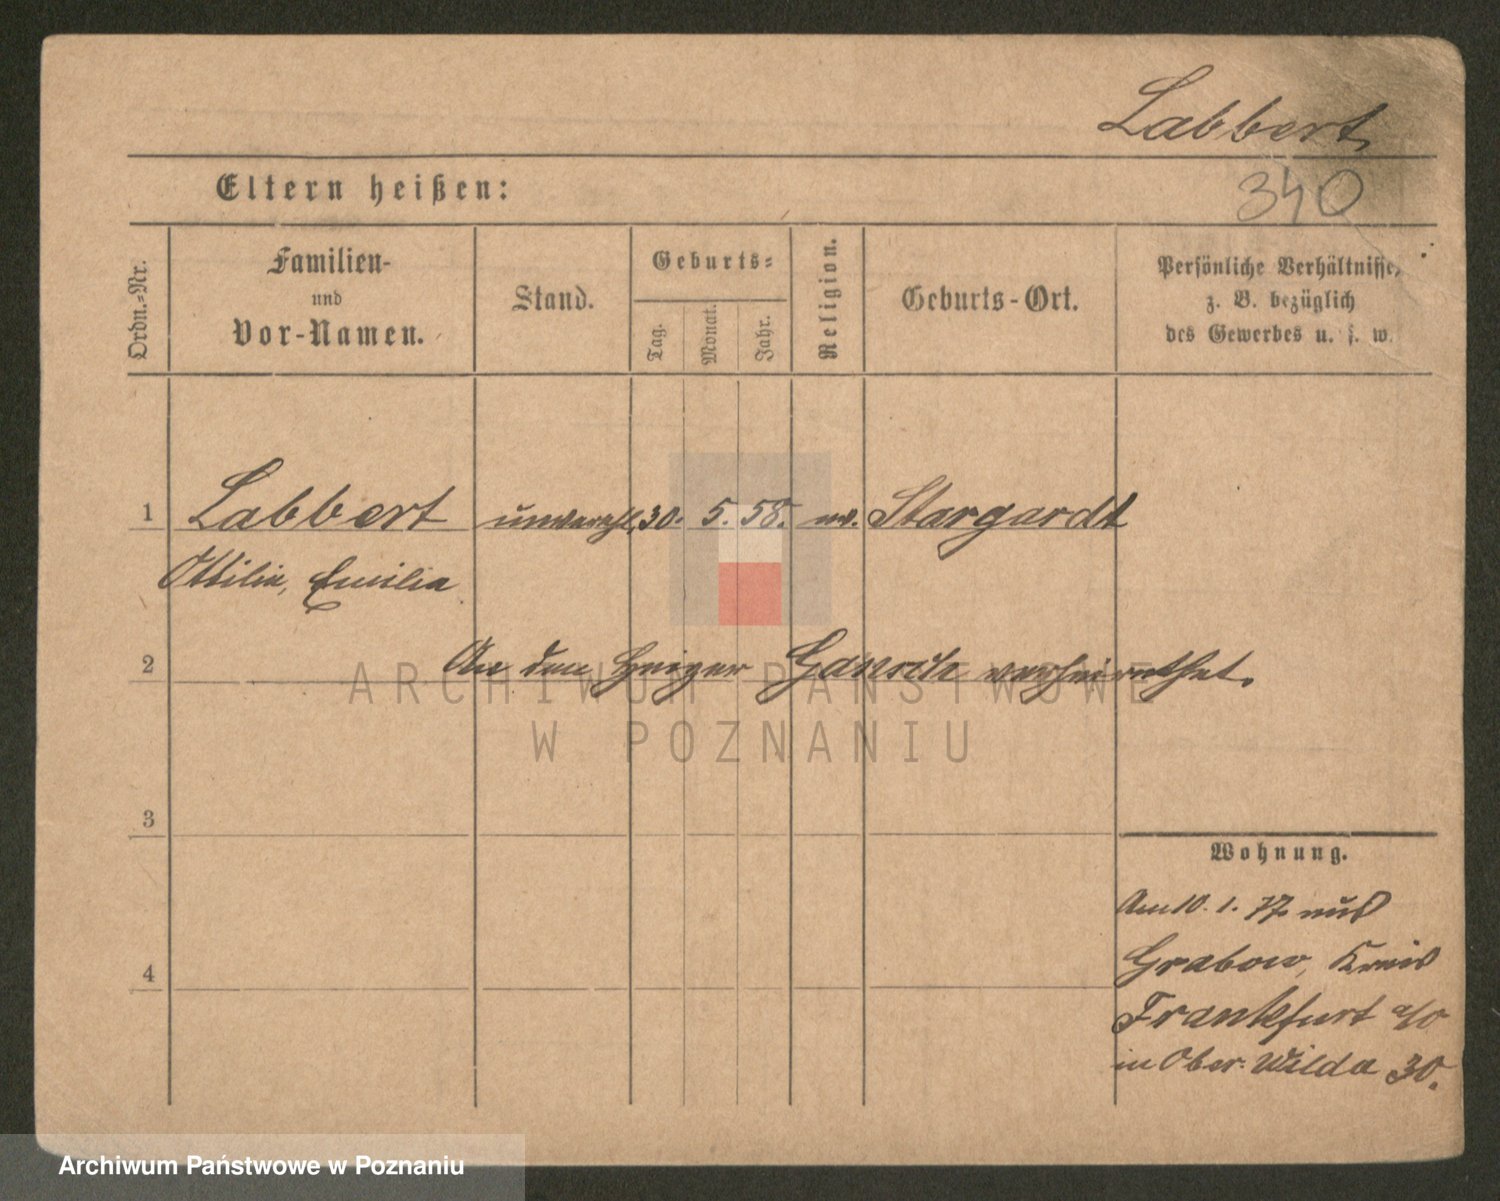 Labbert
340
Eltern heißen:
Ordn.-Nr.
Familien-
und
Vor-Namen.
Stand.
Geburts-
Tag.
Monat.
Jahr.
Religion.
Geburts-Ort.
Persönliche Verhältnisse,
z. B. bezüglich
des Gewerbes u. s. w.
1 Labbert unverehl. 30. 5. 58. ev. Stargardt
Ottilie, Emilie
2 An den Heizer verheirathet.
3
4
Wohnung.
Am 10. 1. 77. aus
Grabow, Kreis
Frankfurt a/O
in Ober-Wilda 30.
ARCHIWUM PAŃSTWOWE
W POZNANIU
Archiwum Państwowe w Poznaniu